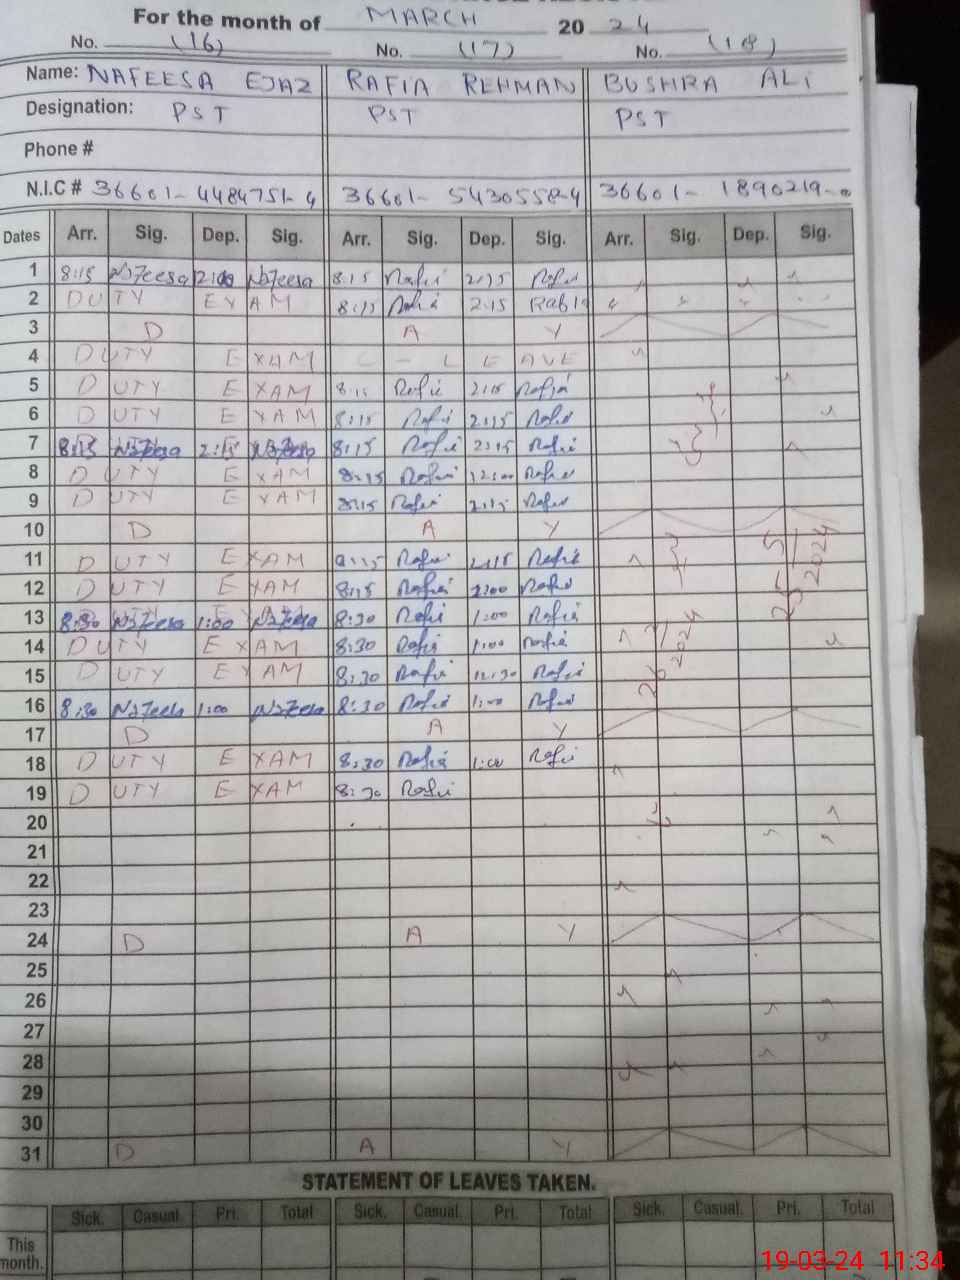 For the month of MARCH 20 24
No. (16) No. (17) No. (18)
Name: NAFEESA EJAZ RAFIA REHMAN BUSHRA ALi
Designation: PST PST PST
Phone #
N.I.C # 36601-4484751-4 36601-5430558-4 36601-1890219-0
Dates Arr. Sig. Dep. Sig. Arr. Sig. Dep. Sig. Arr. Sig. Dep. Sig.
1 8:15 Nafeesa Nafeesa 8:15 Rafia 2:15 Rafia
2 DUTY EXAM 8:15 Rafia 2:15
3 D A Y
4 DUTY EXAM C - LEAVE
5 DUTY EXAM 8:15 Rafia 2:15 Rafia
6 DUTY EXAM 8:15 Rafia 2:15 Rafia
7 8:15 Nafeesa 2:15 Nafeesa 8:15 Rafia 2:15 Rafia
8 DUTY EXAM 8:15 Rafia 12:00 Rafia
9 DUTY EXAM 8:15 Rafia 2:15 Rafia
10 D A Y
11 DUTY EXAM Rafia 2:15 Rafia
12 DUTY EXAM 8:15 Rafia 2:00 Rafia
13 8:30 Nafeesa 1:00 Nafeesa 8:30 Rafia 1:00 Rafia
14 DUTY EXAM 8:30 Rafia 1:00 Rafia
15 DUTY EXAM 8:30 Rafia 12:30 Rafia
16 8:30 Nafeesa 1:00 Nafeesa 8:30 Rafia 1:00 Rafia
17 D A Y
18 DUTY EXAM 8:30 Rafia 1:00 Rafia
19 DUTY EXAM 8:30 Rafia
20
21
22
23
24 D A Y
25
26
27
28
29
30
31 D A Y
STATEMENT OF LEAVES TAKEN.
Sick. Casual. Pri. Total Sick. Casual. Pri. Total Sick. Casual. Pri. Total
This
month.
19-03-24 11:34